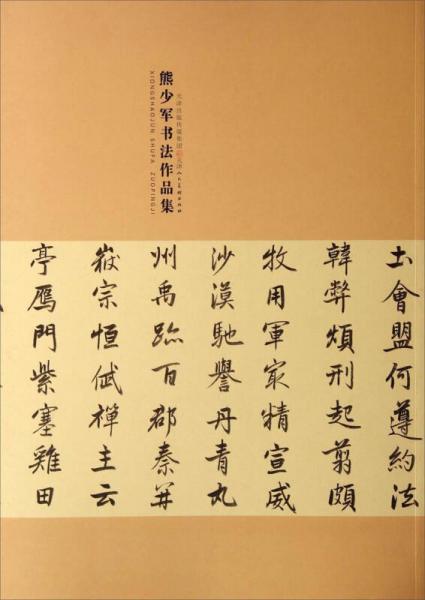 熊少军书法作品集
XIONGSHAOJUN SHUFA ZUOPINGJI
天津出版传媒集团 天津人民美术出版社
土會盟何遵約法
韓弊煩刑起翦頗
牧用軍冣精宣威
沙漠馳譽丹青九
州禹跡百郡秦并
嶽宗恒岱禪主云
亭鴈門紫塞雞田